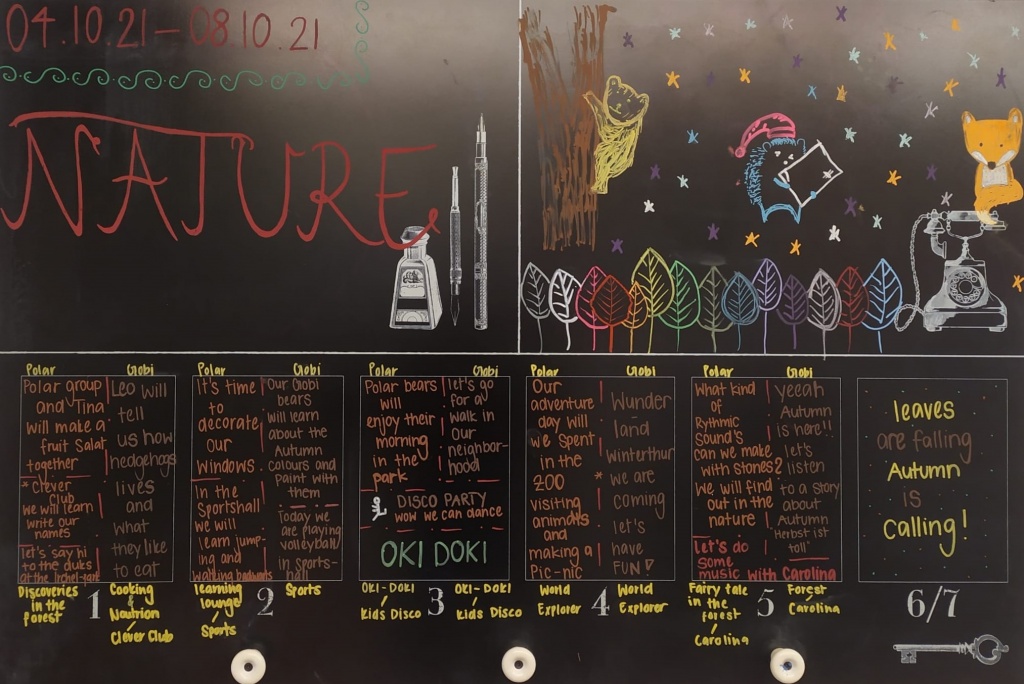 04.10.21 - 08.10.21
NATURE
Polar
Polar group
and Tina
will make a
fruit Salat
together
* Clever
Club
we will learn
write our
names
let's say hi
to the duks
at the Irchel-park
Gobi
Leo will
tell
us how
hedgehogs
lives
and
what
they like
to eat
Discoveries
in the
forest
1
Cooking
&
Nautrion
Clever Club
Polar
It's time
to
decorate
our
windows
In the
Sportshall
we will
learn jump-
ing and
walking backwards
Gobi
Our Gobi
bears
will learn
about the
Autumn
colours and
paint with
them
Today we
are playing
volleyball
in sports-
hall
learning
lounge
Sports
2
Sports
Polar
Polar bears
will
enjoy their
morning
in the
park
Gobi
let's go
for a
walk in
our
neighbor-
hood
DISCO PARTY
wow we can dance
OKI DOKI
OKI-DOKI
Kids Disco
3
OKI-DOKI
Kids Disco
Polar
Our
adventure
day will
we spent
in the
ZOO *
visiting
animals
and
making a
Pic-nic
Gobi
Wunder
land
Winterthur
we are
coming
let's
have
FUN
World
Explorer
4
World
Explorer
Polar
What kind
of
Rythmic
Sound's
can we make
with stones?
We will find
out in the
nature
Gobi
yeeah
Autumn
is here!!
let's
listen
to a story
about
Autumn
"Herbst ist
toll"
let's do
some
music with Carolina
Fairy tale
in the
forest
Carolina
5
Forest
Carolina
leaves
are falling
Autumn
is
calling!
6/7